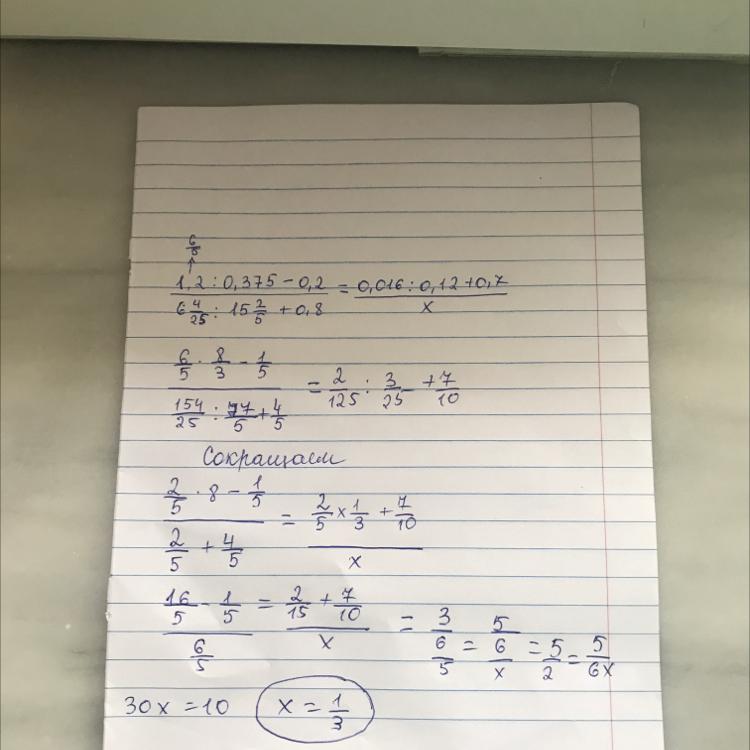 6/5
↑
(1,2 : 0,375 − 0,2)/(6 4/25 : 15 2/5 + 0,8) = (0,016 : 0,12 + 0,7)/x
(6/5 · 8/3 − 1/5)/(154/25 : 77/5 + 4/5) = 2/125 : 3/25 + 7/10
Сокращаем
(2/5 · 8 − 1/5)/(2/5 + 4/5) = (2/5 × 1/3 + 7/10)/x
(16/5 − 1/5)/(6/5) = (2/15 + 7/10)/x = 3/(6/5) = (5/6)/x = 5/2 = 5/6x
30x = 10 x = 1/3